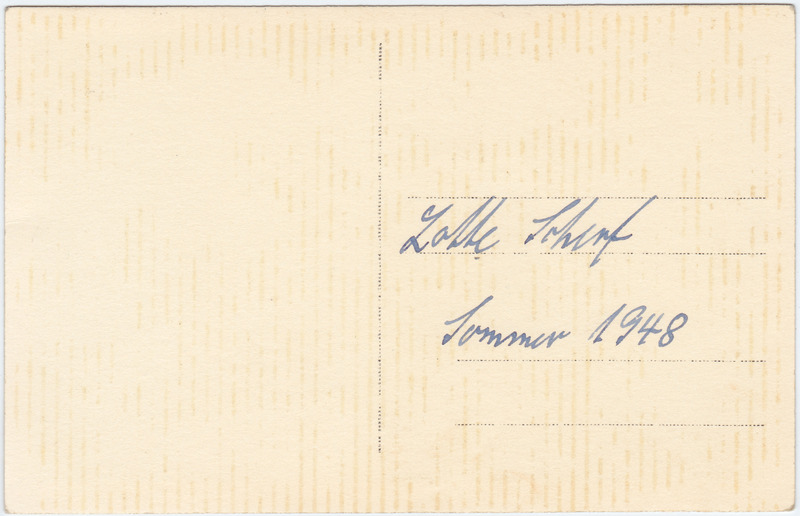 Lotte Scherf
Sommer 1948